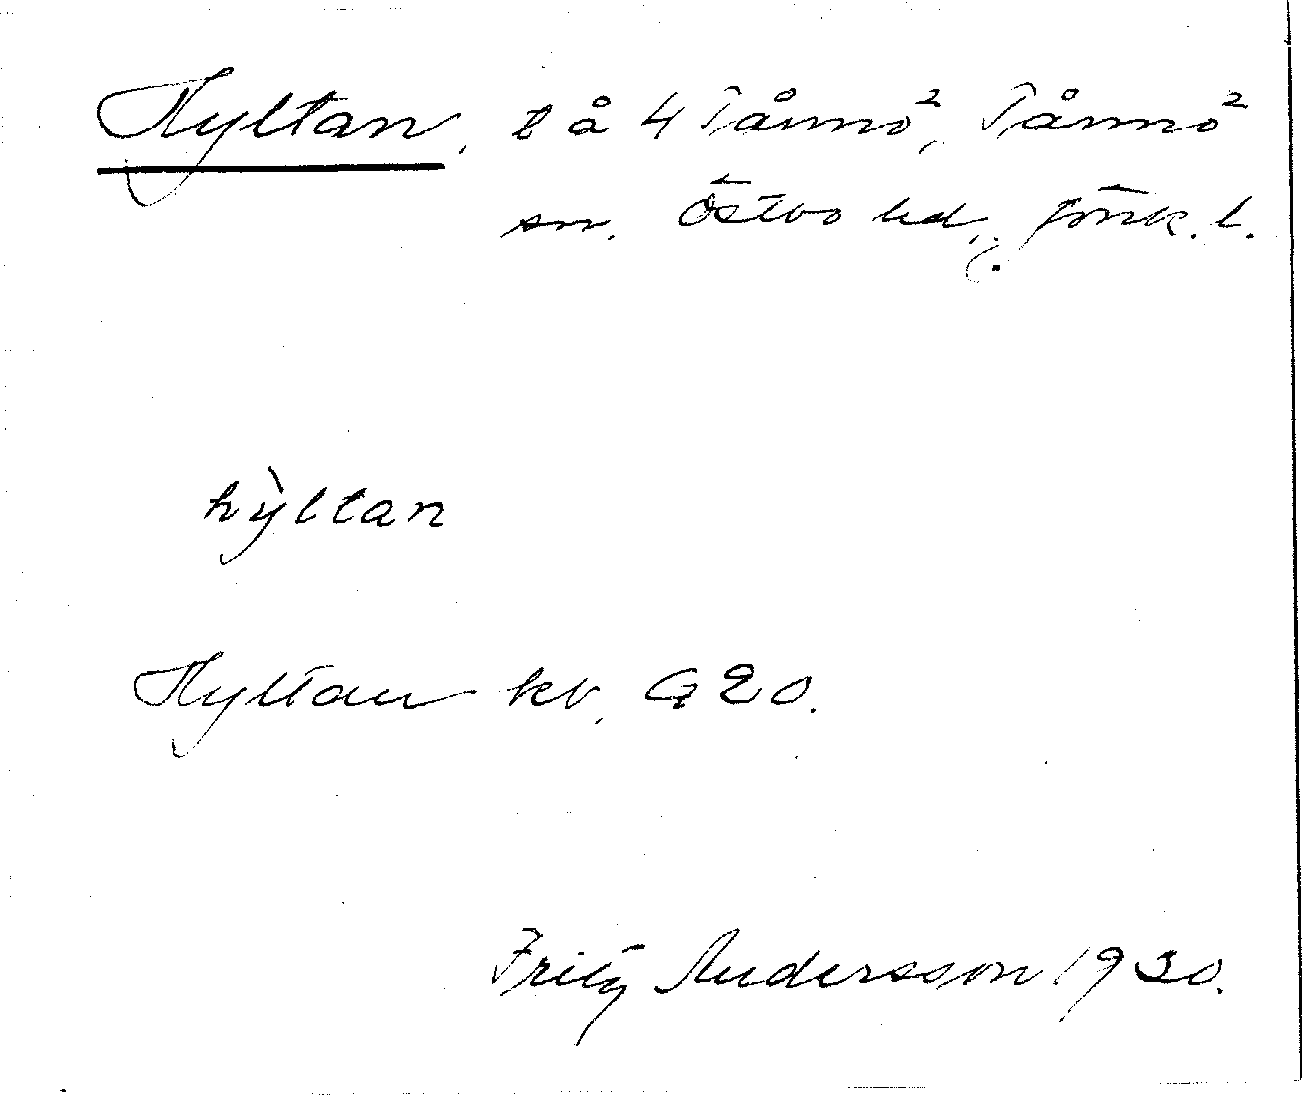 Hyltan, l å 4 Tånnö, Tånnö
sn. Östbo hd, Jönk. l.
hỳltan
Hyltan kv. G 20.
Fritz Andersson 1930.